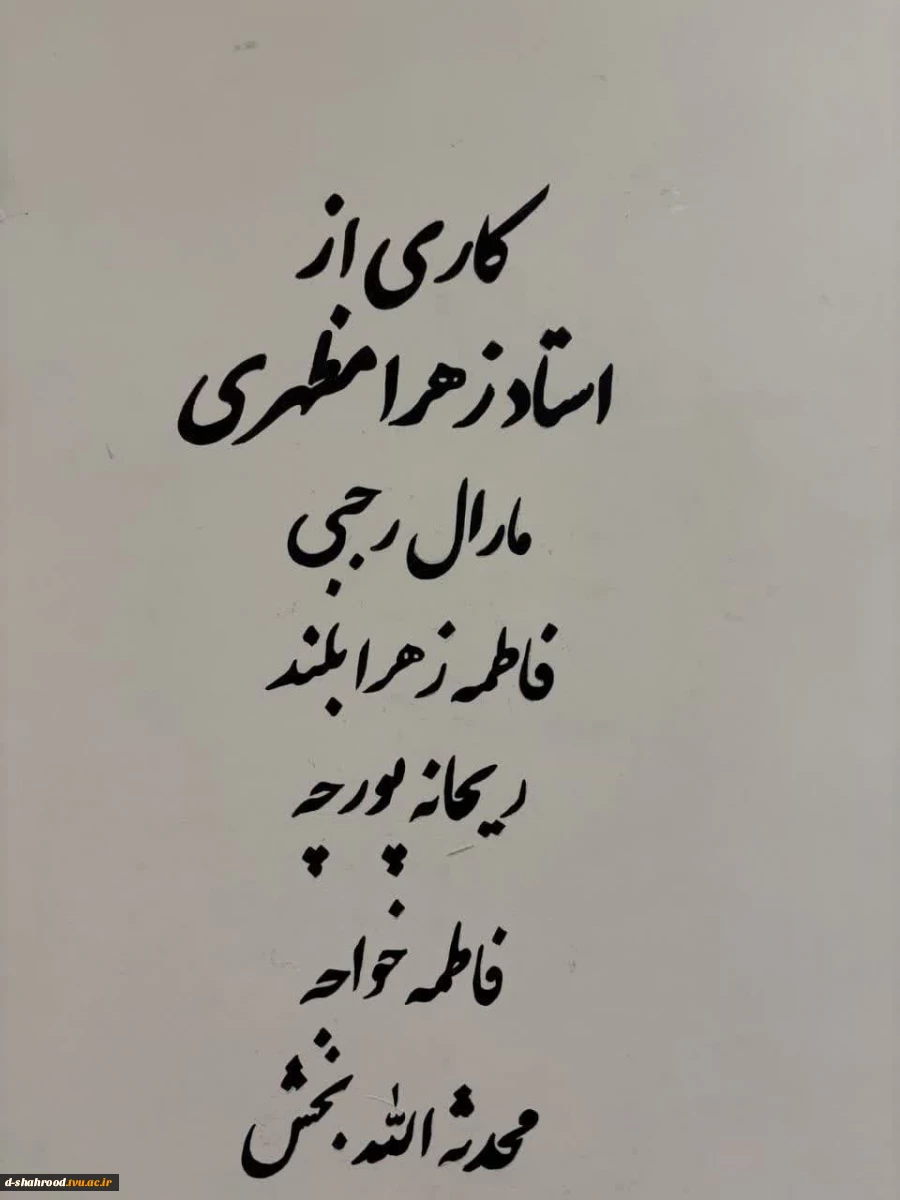 کاری از
استاد زهرا مظهری
مارال رجبی
فاطمه زهرا بلند
ریحانه پورچه
فاطمه خواجه
محدثه الله بخش
d-shahrood.tvu.ac.ir